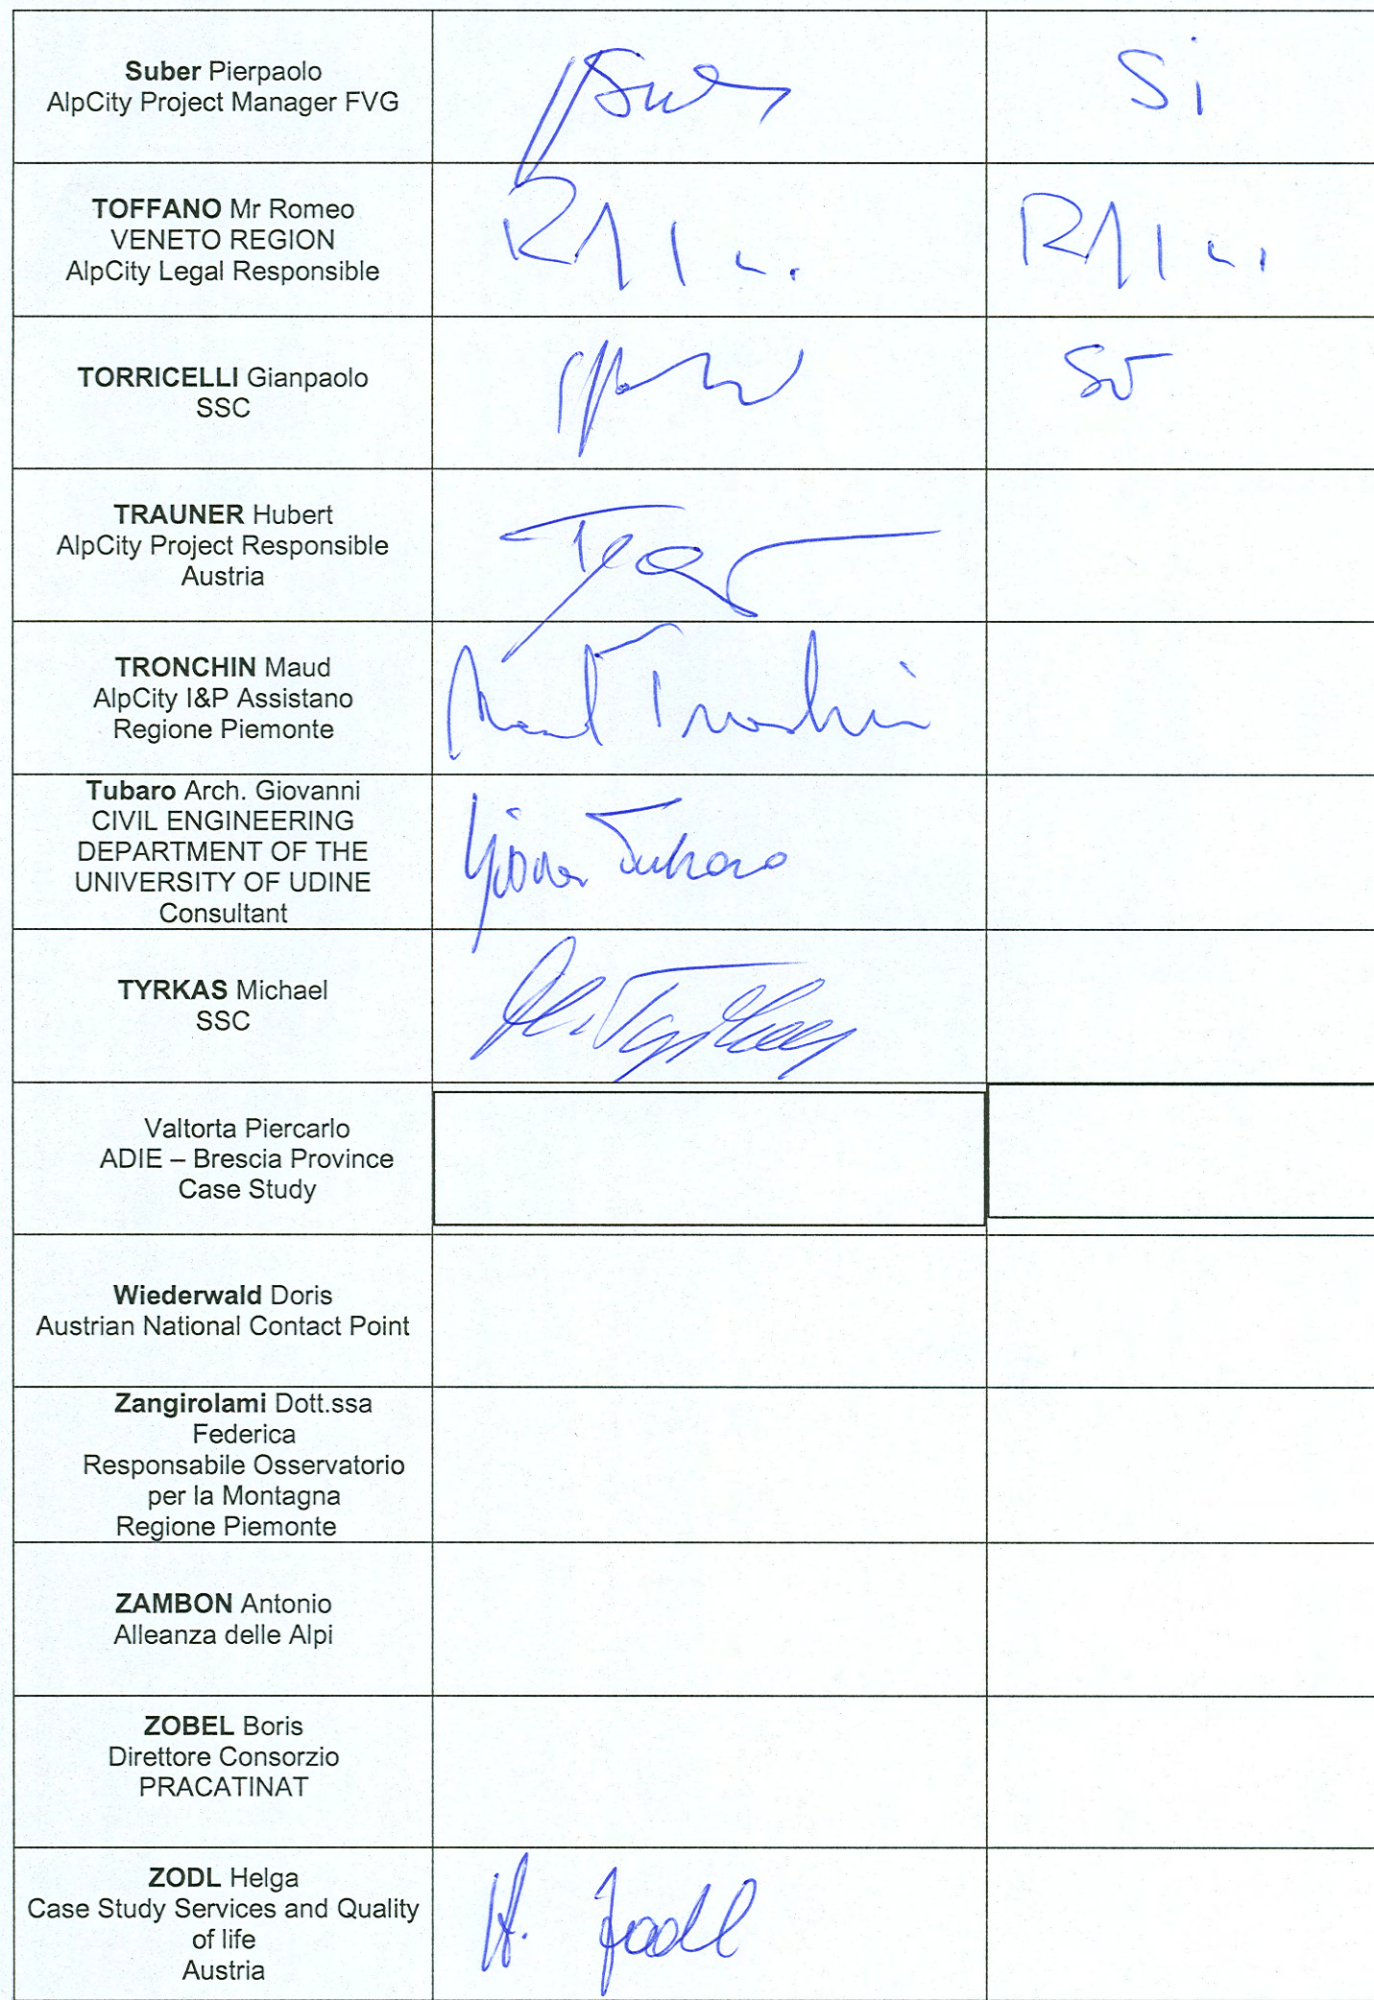 Suber Pierpaolo
AlpCity Project Manager FVG
Si
TOFFANO Mr Romeo
VENETO REGION
AlpCity Legal Responsible
TORRICELLI Gianpaolo
SSC
TRAUNER Hubert
AlpCity Project Responsible
Austria
TRONCHIN Maud
AlpCity I&P Assistano
Regione Piemonte
Maud Tronchin
Tubaro Arch. Giovanni
CIVIL ENGINEERING
DEPARTMENT OF THE
UNIVERSITY OF UDINE
Consultant
Tubaro
TYRKAS Michael
SSC
Valtorta Piercarlo
ADIE – Brescia Province
Case Study
Wiederwald Doris
Austrian National Contact Point
Zangirolami Dott.ssa
Federica
Responsabile Osservatorio
per la Montagna
Regione Piemonte
ZAMBON Antonio
Alleanza delle Alpi
ZOBEL Boris
Direttore Consorzio
PRACATINAT
ZODL Helga
Case Study Services and Quality
of life
Austria
H. Zodl